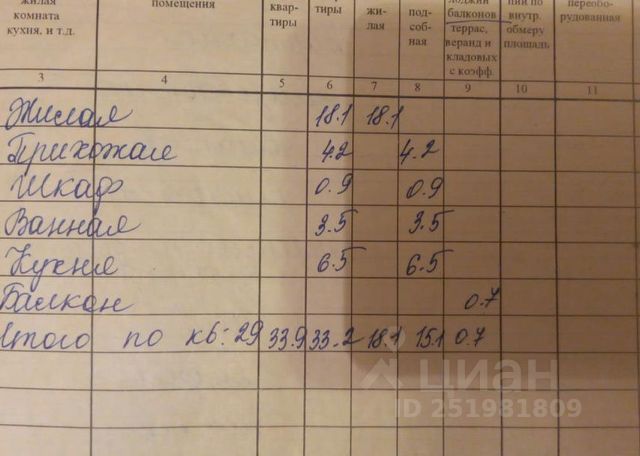 жилая комната кухня, и т.д. помещения квар- тиры тиры жи- лая под- соб- ная лоджий балконов террас, веранд и кладовых с коэфф. ции по внутр. обмеру площадь переобо- рудованная
3 4 5 6 7 8 9 10 11
Жилая 18.1 18.1
Прихожая 4.2 4.2
Шкаф 0.9 0.9
Ванная 3.5 3.5
Кухня 6.5 6.5
Балкон 0.7
Итого по кв: 29 33.9 33.2 18.1 15.1 0.7
циан
ID 251981809